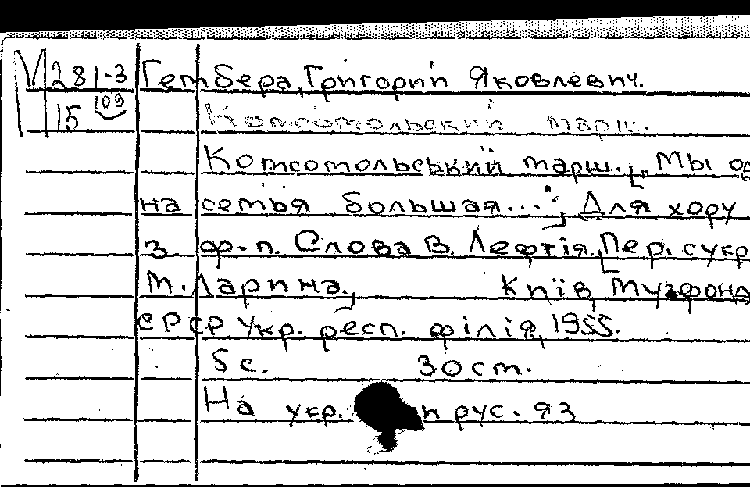 М 281-3 Гембера, Григорий Яковлевич.
15 109 Комсомольский марш.
Комсомольський марш. [„Мы од
на семья большая..."]; Для хору
з ф-п. Слова В. Лефтія. [Пер. с укр
М. Ларина.], Київ, Музфонд
СРСР Укр. респ. філія, 1955.
5 с. 30 cm.
На укр. рус. яз